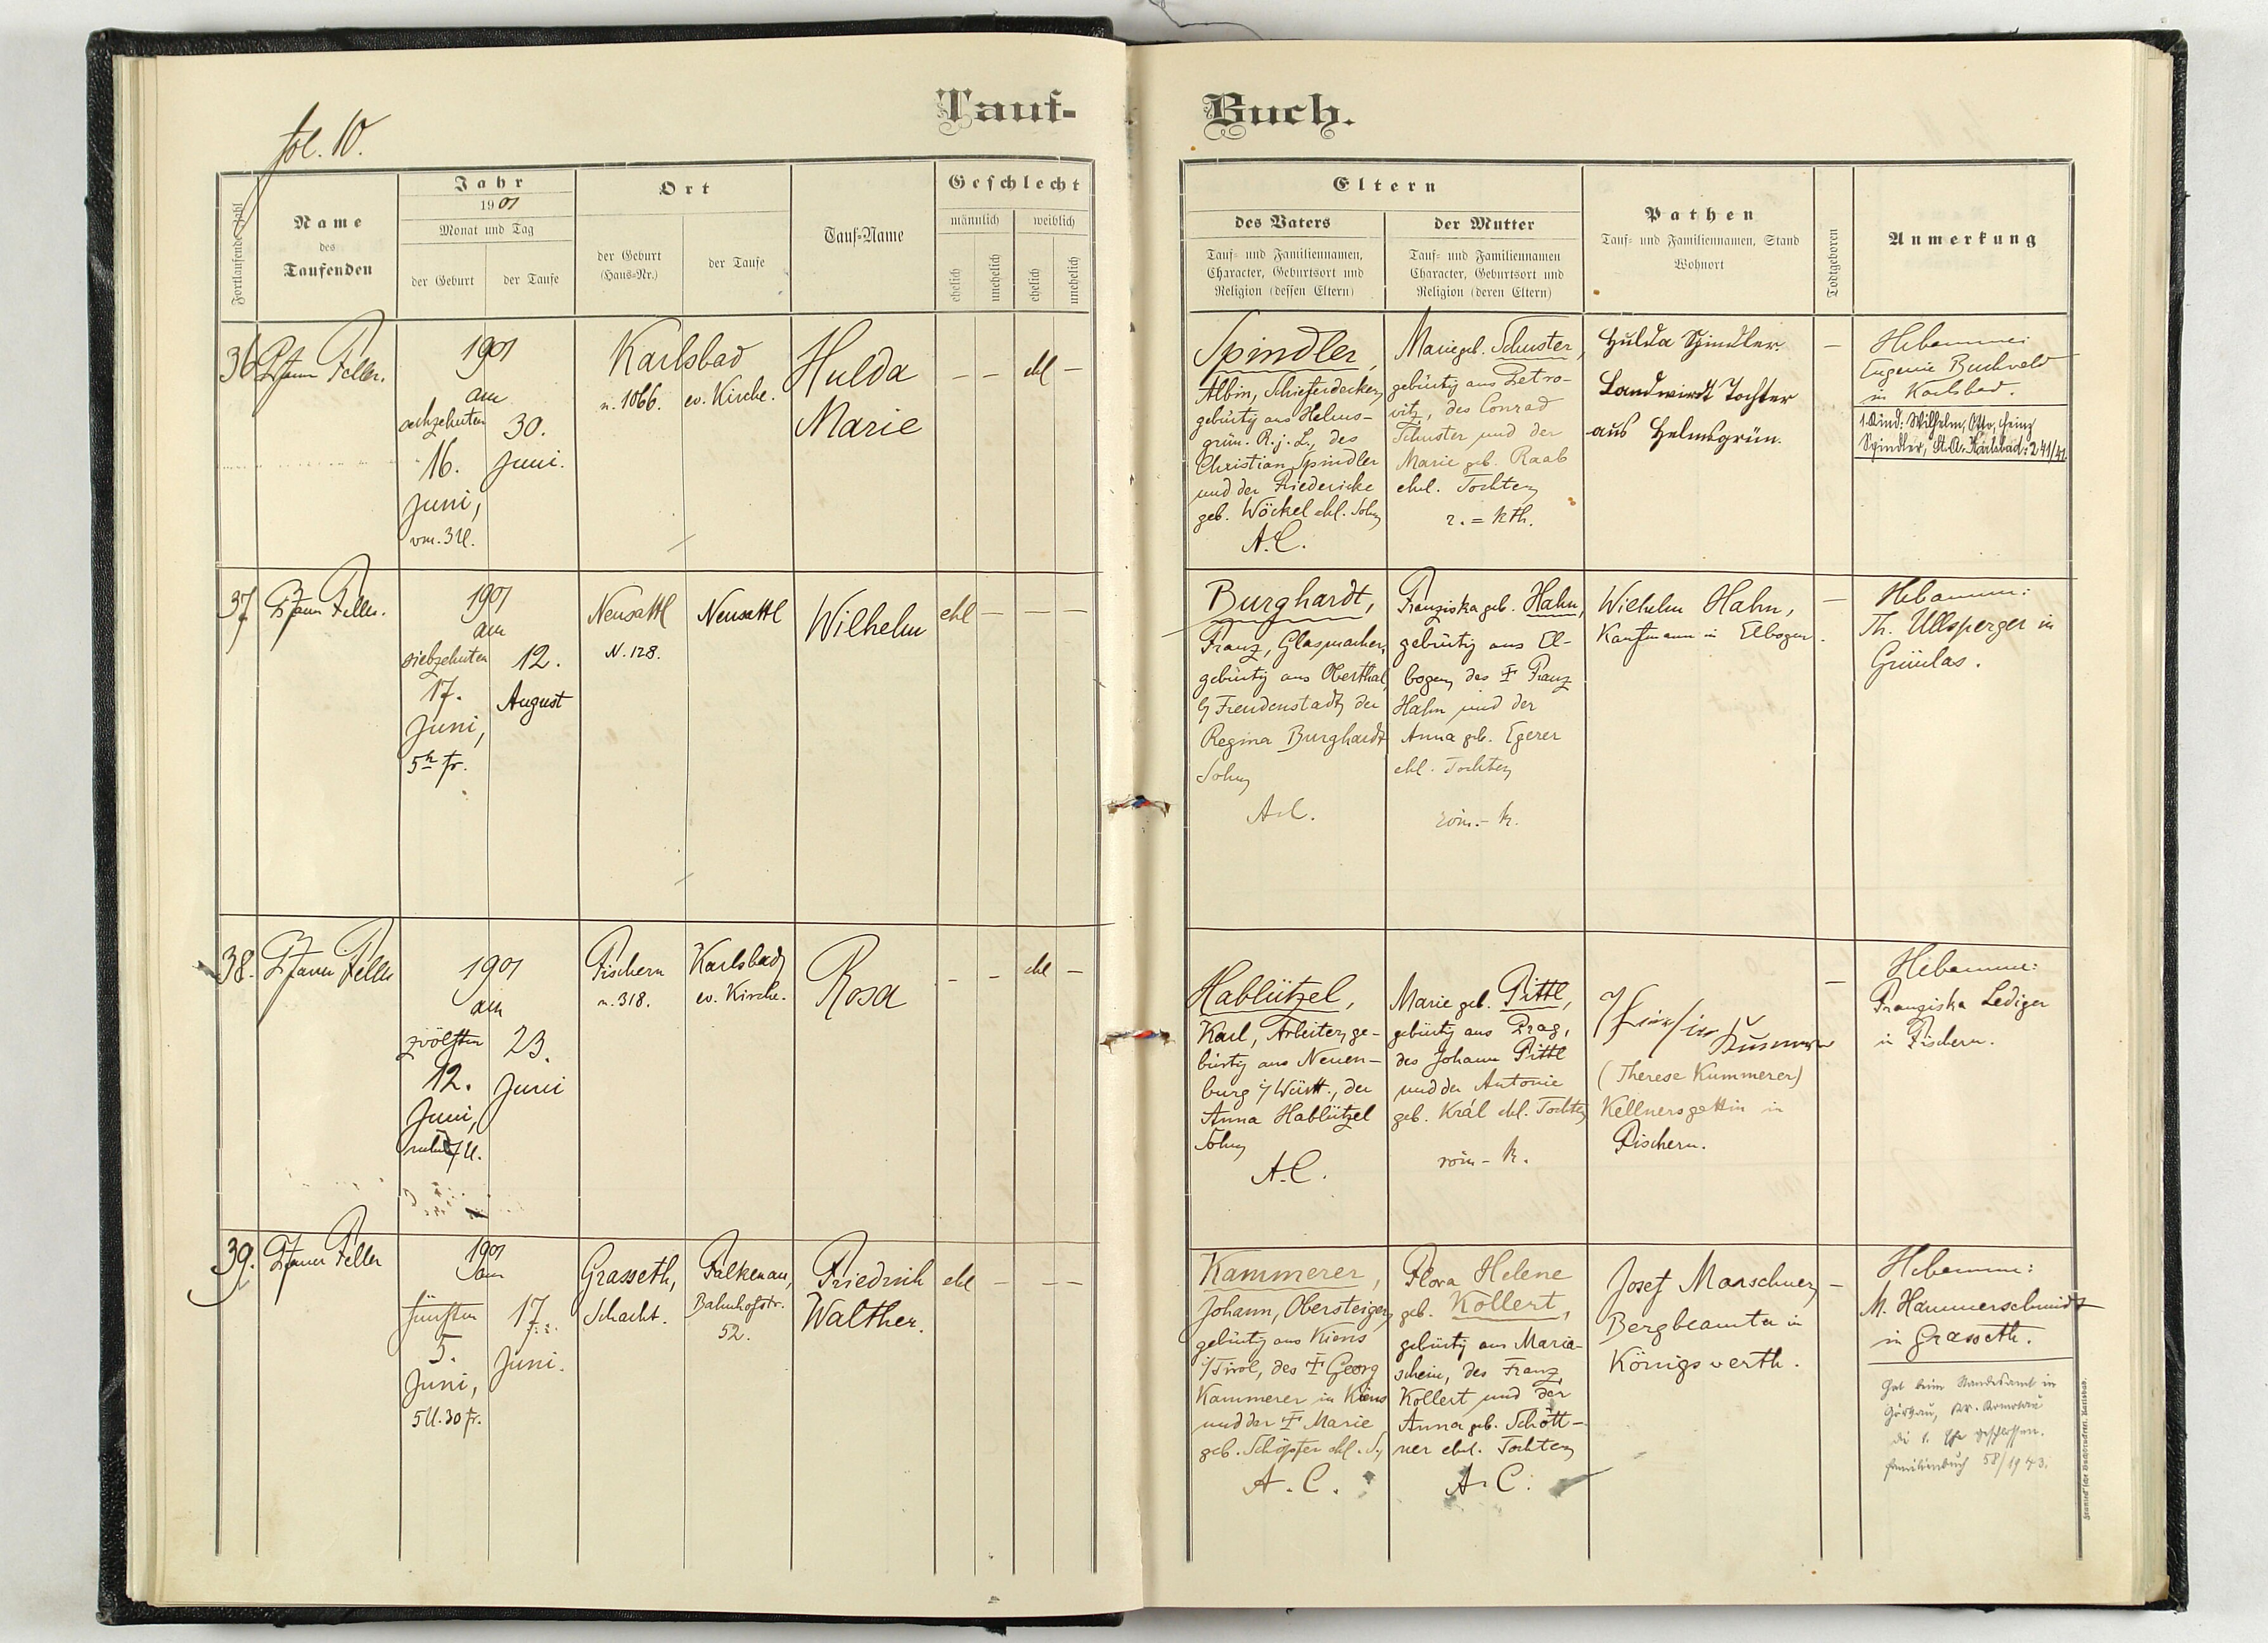 fol. 10.
Tauf-
Buch.
Fortlaufende Zahl
Name
des
Taufenden
Jahr
1901
Monat und Tag
der Geburt
der Taufe
Ort
der Geburt
(Haus-Nr.)
der Taufe
Tauf-Name
Geschlecht
männlich
weiblich
ehelich
unehelich
ehelich
unehelich
Eltern
des Vaters
Tauf- und Familiennamen,
Character, Geburtsort und
Religion (dessen Eltern)
der Mutter
Tauf- und Familiennamen
Character, Geburtsort und
Religion (deren Eltern)
Pathen
Tauf- und Familiennamen, Stand
Wohnort
Todtgeboren
Anmerkung
36.
Pfarrer Feller.
1901
am
sechzehnten
16.
Juni,
vm. 3 U.
30.
Juni.
Karlsbad
n. 1066.
ev. Kirche.
Hulda
Marie
– – ehl –
Spindler,
Albin, Schieferdecker,
gebürtig aus Helms-
grün. R. j. L., des
Christian Spindler
und der Friedericke
geb. Wöckel ehl. Sohn
A. C.
Marie geb. Schuster,
gebürtig aus Petro-
vitz, des Conrad
Schuster und der
Marie geb. Raab
ehel. Tochter
r. = kth.
Hulda Spindler.
Landwirts Tochter
aus Helmsgrün.
–
Hebamme:
Eugenie Buchveld
in Karlsbad.
1. Kind: Wilhelm, Otto, Heinz
Spindler, St.A. Karlsbad: 241/41.
37.
Pfarrer Feller.
1901
am
siebzehnten
17.
Juni,
5h fr.
12.
August
Neusattl
N. 128.
Neusattl
Wilhelm
ehl – – –
Burghardt,
Franz, Glasmacher,
gebürtig aus Oberthal
b/ Freudenstadt, der
Regina Burghardt
Sohn
A. C.
Franziska geb. Hahn,
gebürtig aus El-
bogen, des † Franz
Hahn und der
Anna geb. Egerer
ehl. Tochter
röm. - k.
Wilhelm Hahn,
Kaufmann in Elbogen.
–
Hebamme:
Th. Ullsperger in
Grünlas.
38.
Pfarrer Feller
1901
am
zwölften
12.
Juni,
23.
Juni
Fischern
n. 318.
Karlsbad,
ev. Kirche.
Rosa
– – ehl –
Hablützel,
Karl, Arbeiter, ge-
bürtig aus Neuen-
burg i/ Württ., der
Anna Hablützel
Sohn
A. C.
Marie geb. Pittl,
gebürtig aus Prag,
des Johann Pittl
und der Antonie
geb. Král ehl. Tochter
röm - k.
(Therese Kummerer)
Kellnersgattin in
Fischern.
–
Hebamme:
Franziska Lediger
in Fischern.
39.
Pfarrer Feller
1901
am
fünften
5.
Juni,
5 U. 30 fr.
17.
Juni.
Grasseth,
Schacht.
Falkenau,
Bahnhofstr.
52.
Friedrich
Walther.
ehl – – –
Kammerer,
Johann, Obersteiger,
gebürtig aus Kiens
i/Tirol, des † Georg
Kammerer in Kiens
und der † Marie
geb. Schöpfer ehl. S.,
A. C.
Flora Helene
geb. Kollert,
gebürtig aus Maria-
schein, des Franz
Kollert und der
Anna geb. Schött-
ner ehel. Tochter
A. C.
Josef Marschner,
Bergbeamter in
Königswerth.
–
Hebamme:
M. Hammerschmidt
in Grasseth.
Hat beim Standesamt in
Görkau, Kr. Komotau
die 1. Ehe geschlossen.
Familienbuch 58/1943.